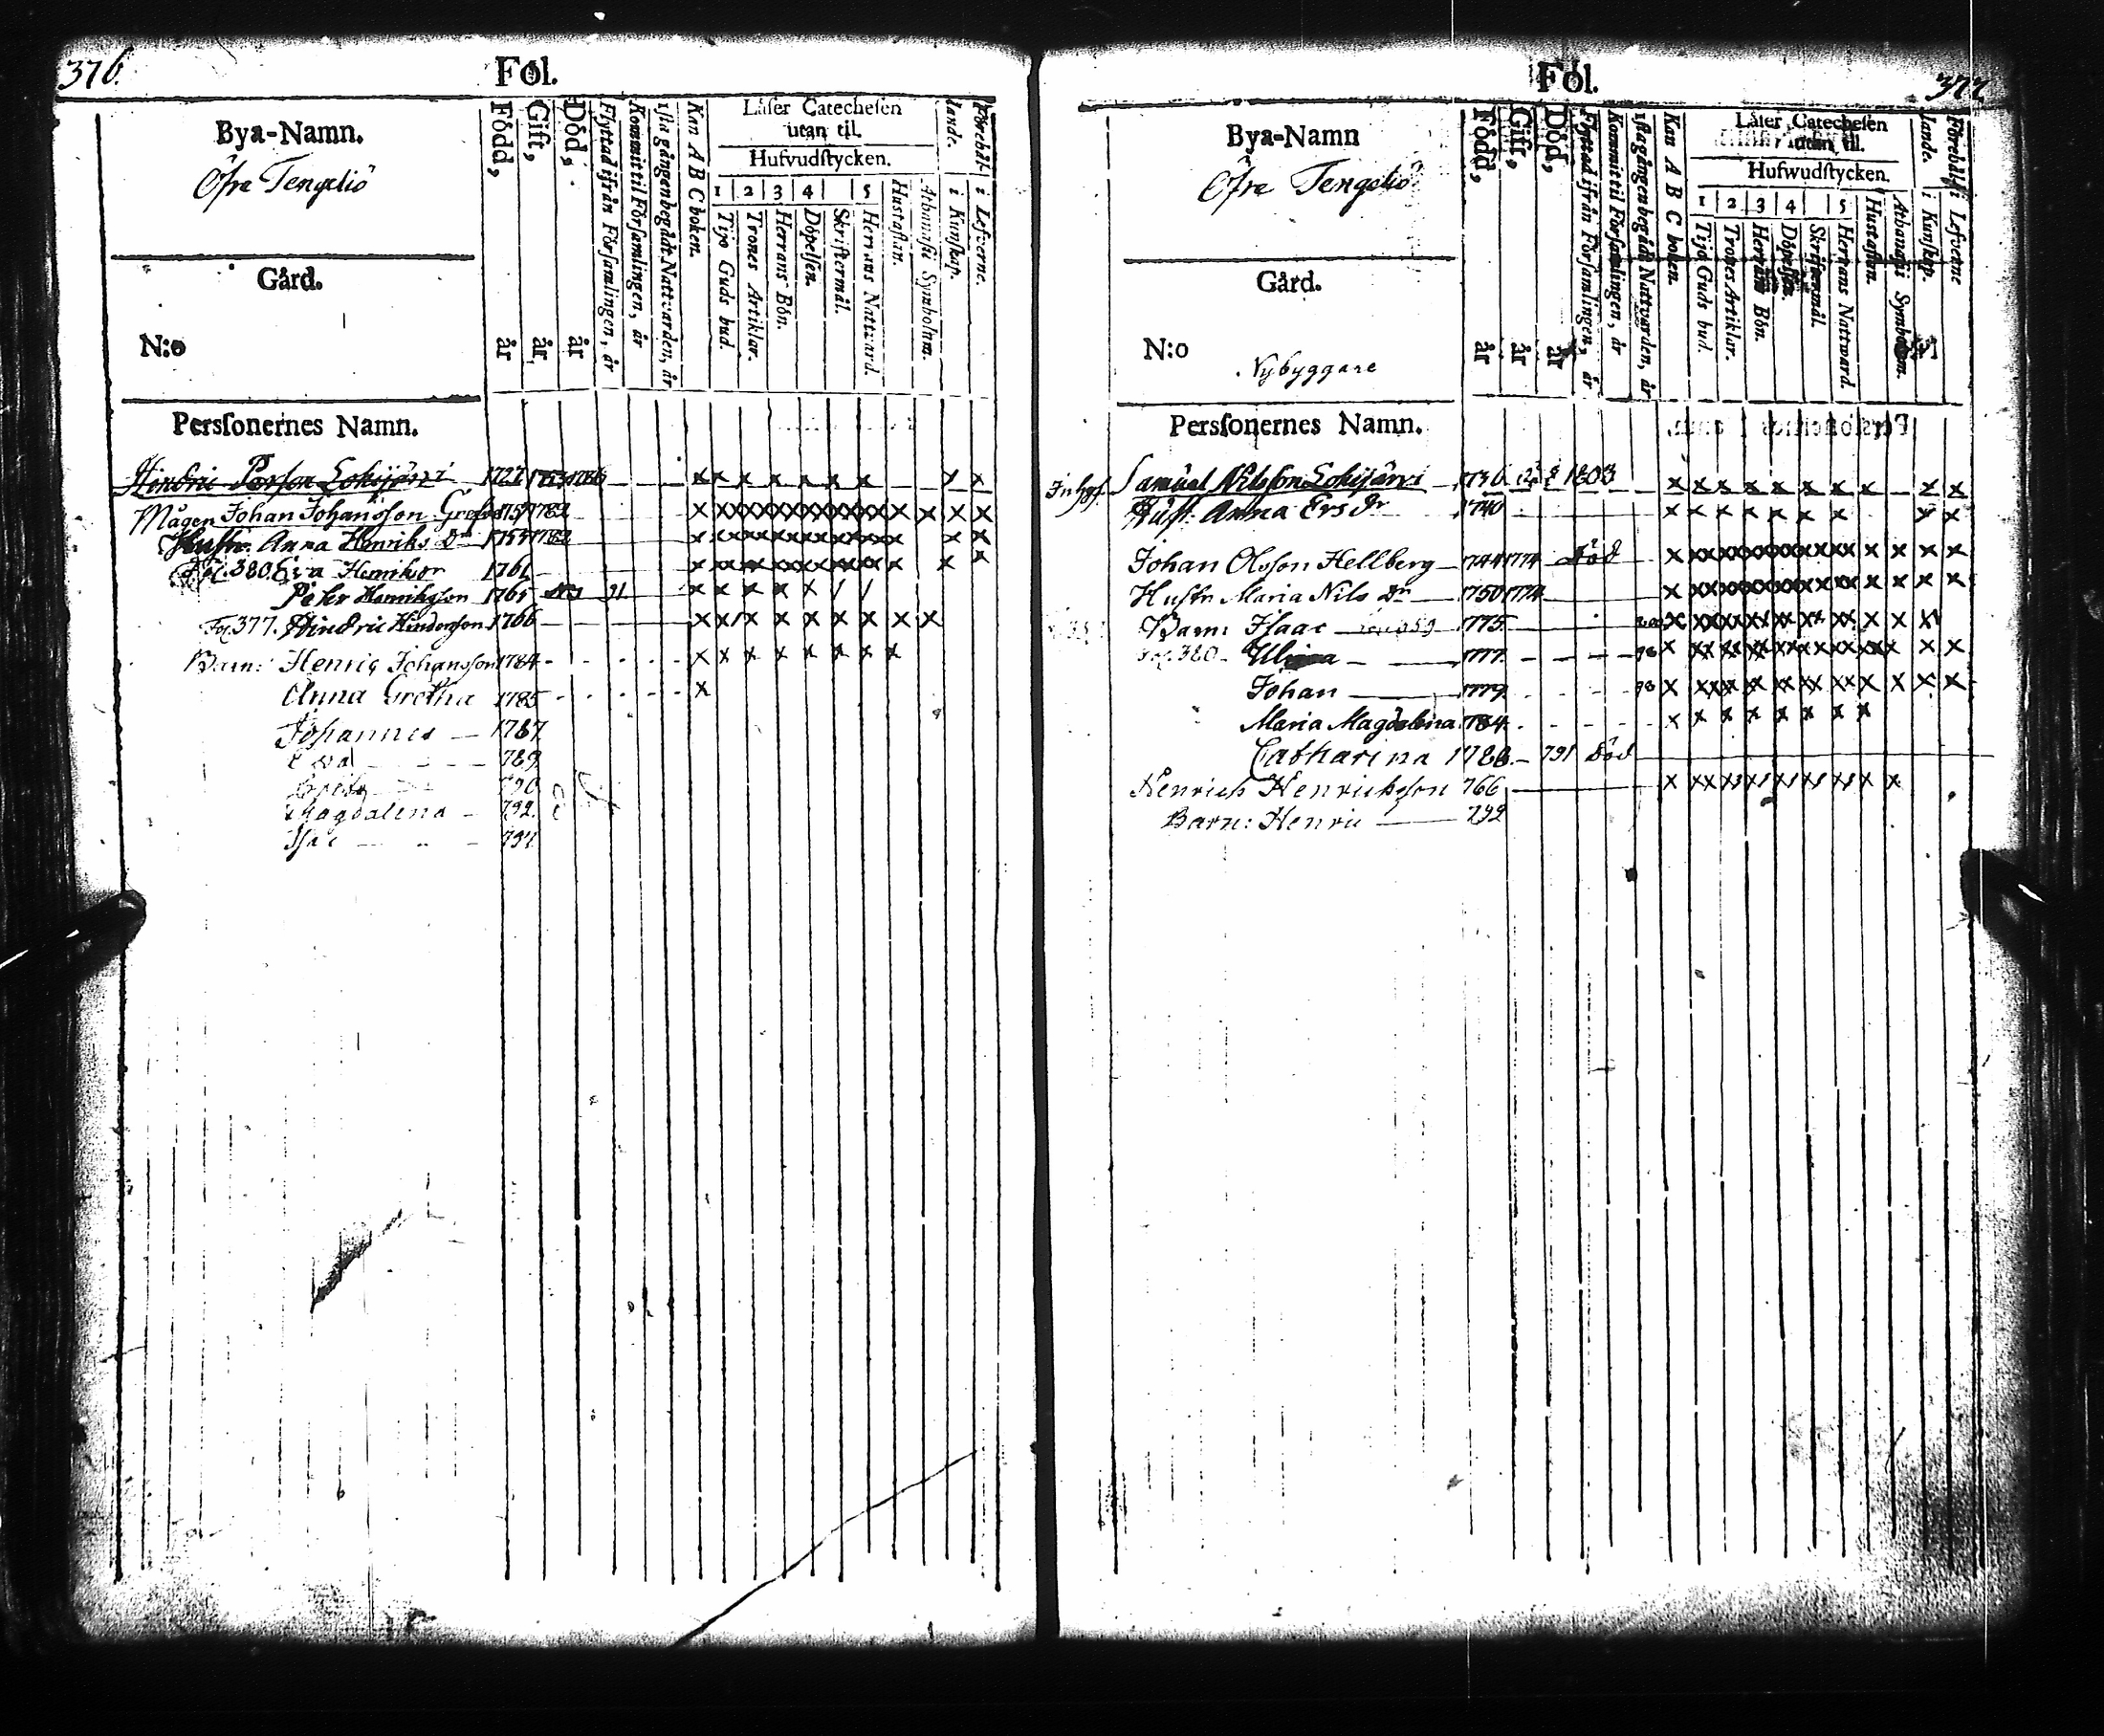 376.
Fol.
Bya-Namn.
Öfre Tengeliö
Gård.
N:o
Född, år
Gift, år
Död, år
Flyttad ifrån Förſamlingen, år
Kommit til Förſamlingen, år
1ſta gången begådt Nattvarden, år
Kan A B C boken.
Låſer Catecheſen
utan til.
Hufvudſtycken.
1 2 3 4 5
Tijo Guds bud.
Trones Artiklar.
Herrans Bön.
Döpelſen.
Skriftermål.
Herrans Nattvard.
Hustaflan.
Athanaſii Symbolum.
Förehållande.
i Kunſkap.
i Lefverne.
Perſſonernes Namn.
Hindric Persson Lohijärvi 1727
Mågen Johan Johansson 1782
Hustr. Anna Henriks Dr 1782
Fol. 380. Eva 1761
Peter Henriksson 1765 91
Fol. 377. Hindric Hindersson 1766
Barn: Henric Johansson 1784
Anna Gretha 1785
Johannes 1787
Eva 789
790
Magdalena 792.
Isac 794
377
Fol.
Bya-Namn
Öfre Tengeliö
Gård.
N:o
Nybyggare
Född, år
Gift, år
Död, år
Flyttad ifrån Förſamlingen, år
Kommit til Förſamlingen, år
1ſta gången begådt Nattvarden, år
Kan A B C boken.
Låſer Catecheſen
utan til.
Hufwudſtycken.
1 2 3 4 5
Tijo Guds bud.
Trones Artiklar.
Herrans Bön.
Döpelſen.
Skriftermål.
Herrans Nattward.
Hustaflan.
Athanaſii Symbolum.
Förehållande.
i Kunſkap.
i Lefverne
Perſſonernes Namn.
Samuel Nilsson Lohijärvi 1736 1803
Hust. Anna Ers dr 1740
Johan Olsson Hellberg 1744 1774 död
Hustr Maria Nils Dr 1750 1774
Barn: Isaac 1775
Fol. 380 1777. 98
Johan 1779. 98
Maria Magdalena 1784.
Catharina 1786 791 död
Henrich Henricksson 766
Barn: Henric 792